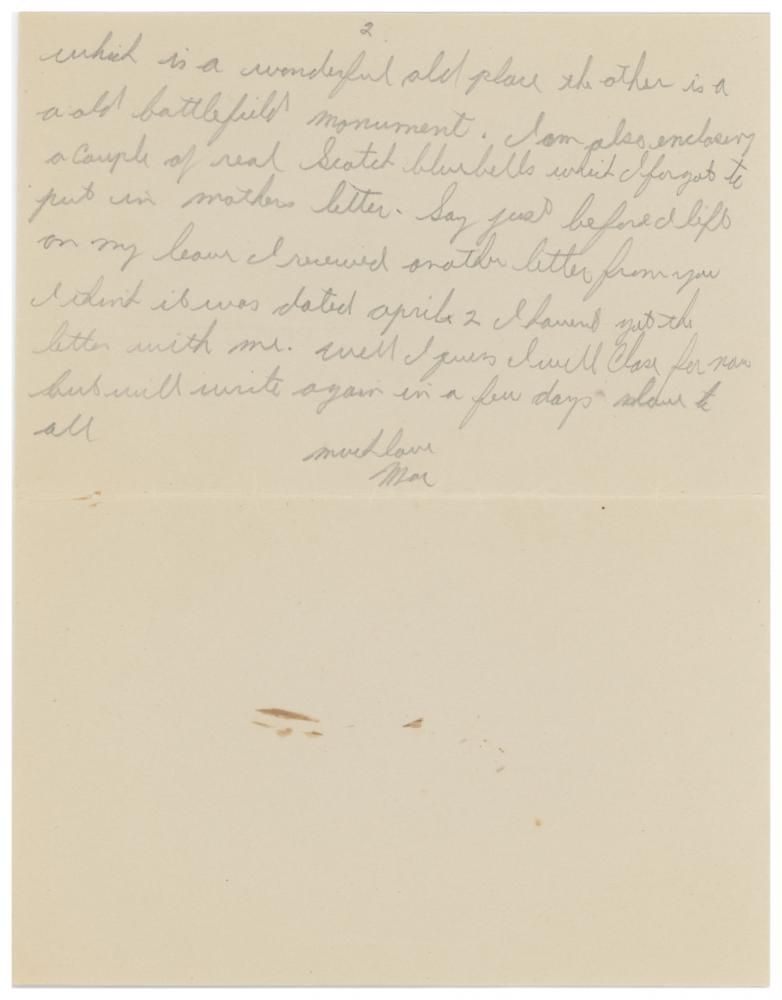 2
which is a wonderful old place the other is a
a old battlefield monument. I am also enclosing
a Couple of real Scotch bluebells which I forgot to
put in mothers letter. Say just before I left
on my leave I received another letter from you
I think it was dated april 2 I havent got the
letter with me. well I guess I will Close for now
but will write again in a few days love to
all
much love
Mac